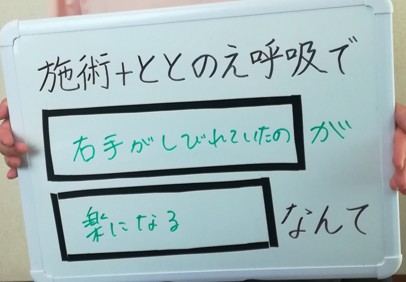 施術+ととのえ呼吸で
右手がしびれていたのが
楽になるなんて